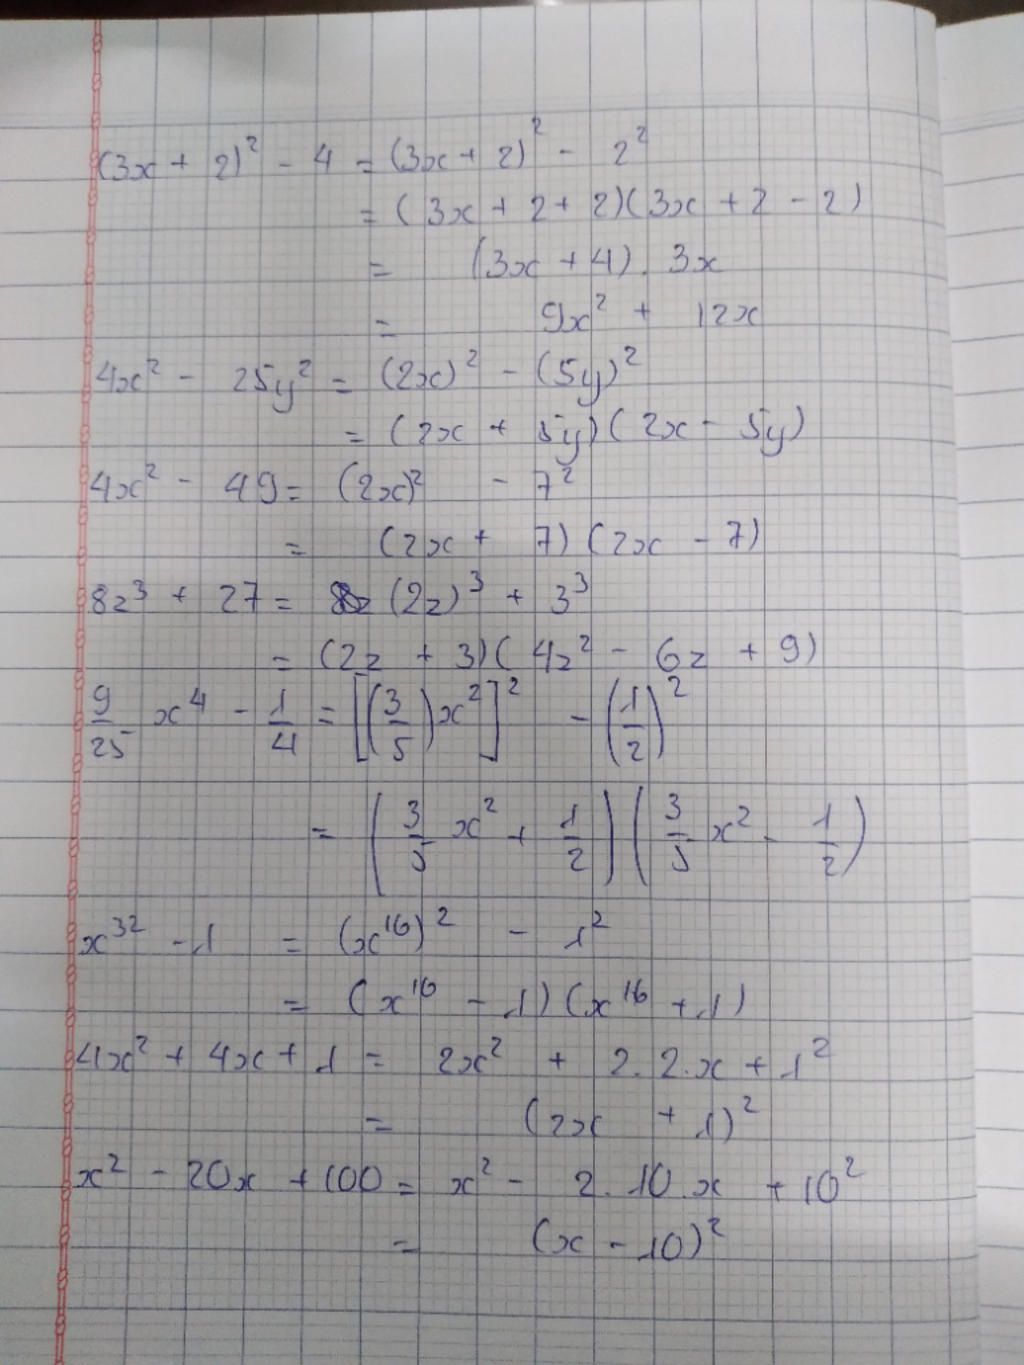 (3x + 2)² - 4 = (3x + 2)² - 2²
= (3x + 2 + 2)(3x + 2 - 2)
= (3x + 4) . 3x
= 9x² + 12x
4x² - 25y² = (2x)² - (5y)²
= (2x + 5y)(2x - 5y)
4x² - 49 = (2x)² - 7²
= (2x + 7)(2x - 7)
8z³ + 27 = (2z)³ + 3³
= (2z + 3)(4z² - 6z + 9)
9/25 x⁴ - 1/4 = [(3/5)x²]² - (1/2)²
= (3/5 x² + 1/2)(3/5 x² - 1/2)
x³² - 1 = (x¹⁶)² - 1²
= (x¹⁶ - 1)(x¹⁶ + 1)
4x² + 4x + 1 = 2x² + 2.2.x + 1²
= (2x + 1)²
x² - 20x + 100 = x² - 2.10.x + 10²
= (x - 10)²